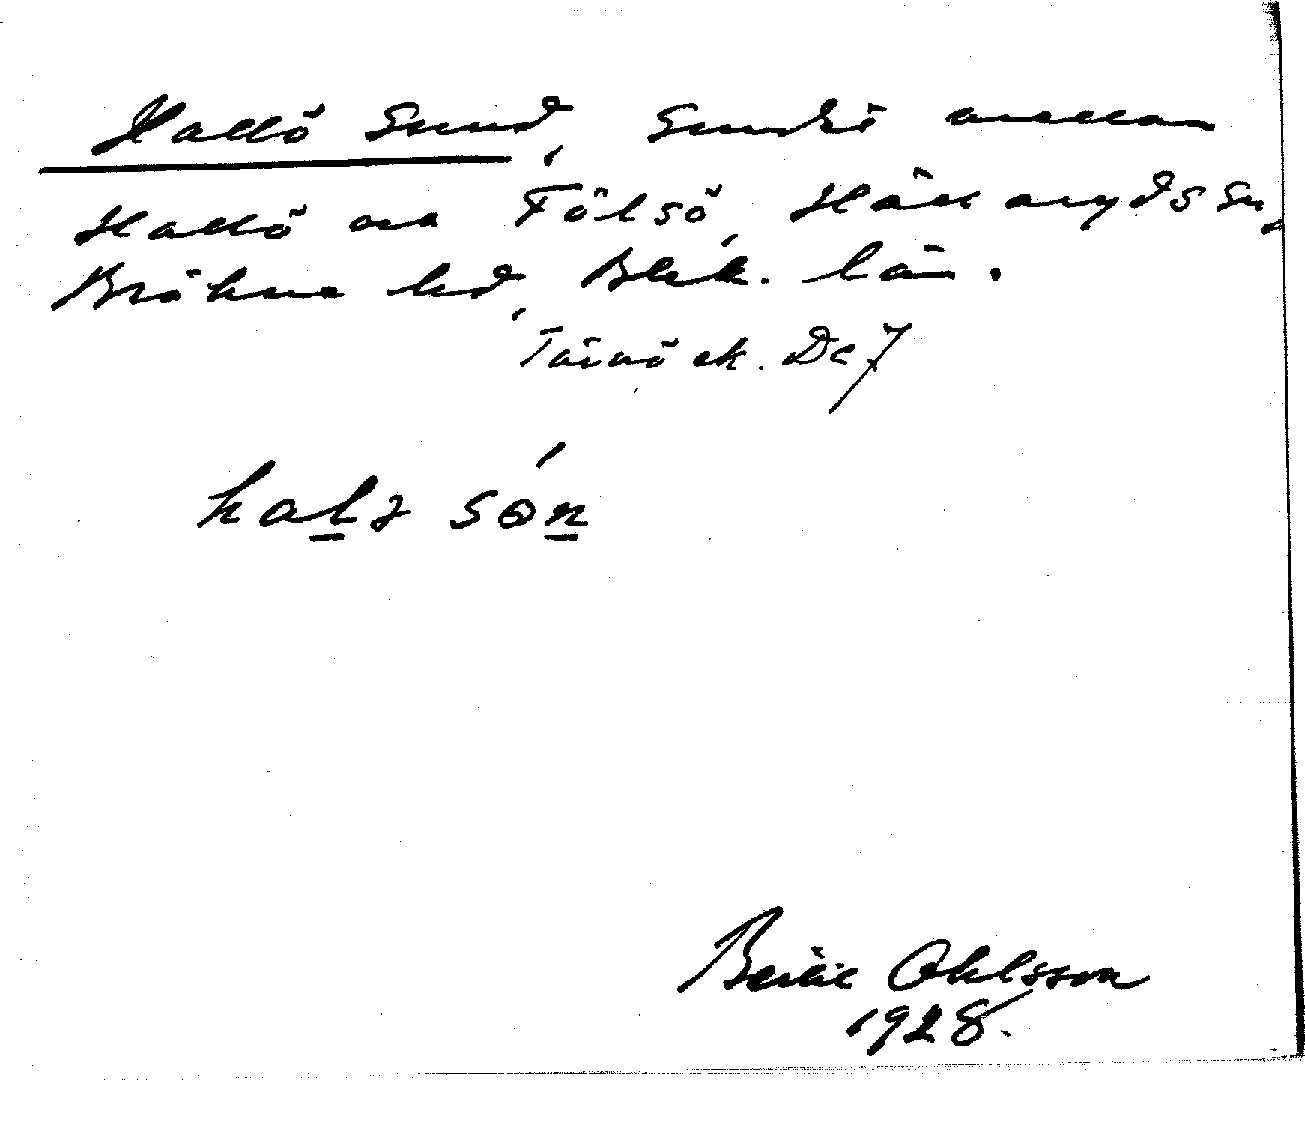 Hallö sund, sundet mellan
Hallö och Fölsö, Hällaryds sn,
Bräkne hd, Blek. län.
Tärnö ek. De 7
halz són
Bertil Ohlsson
1928.